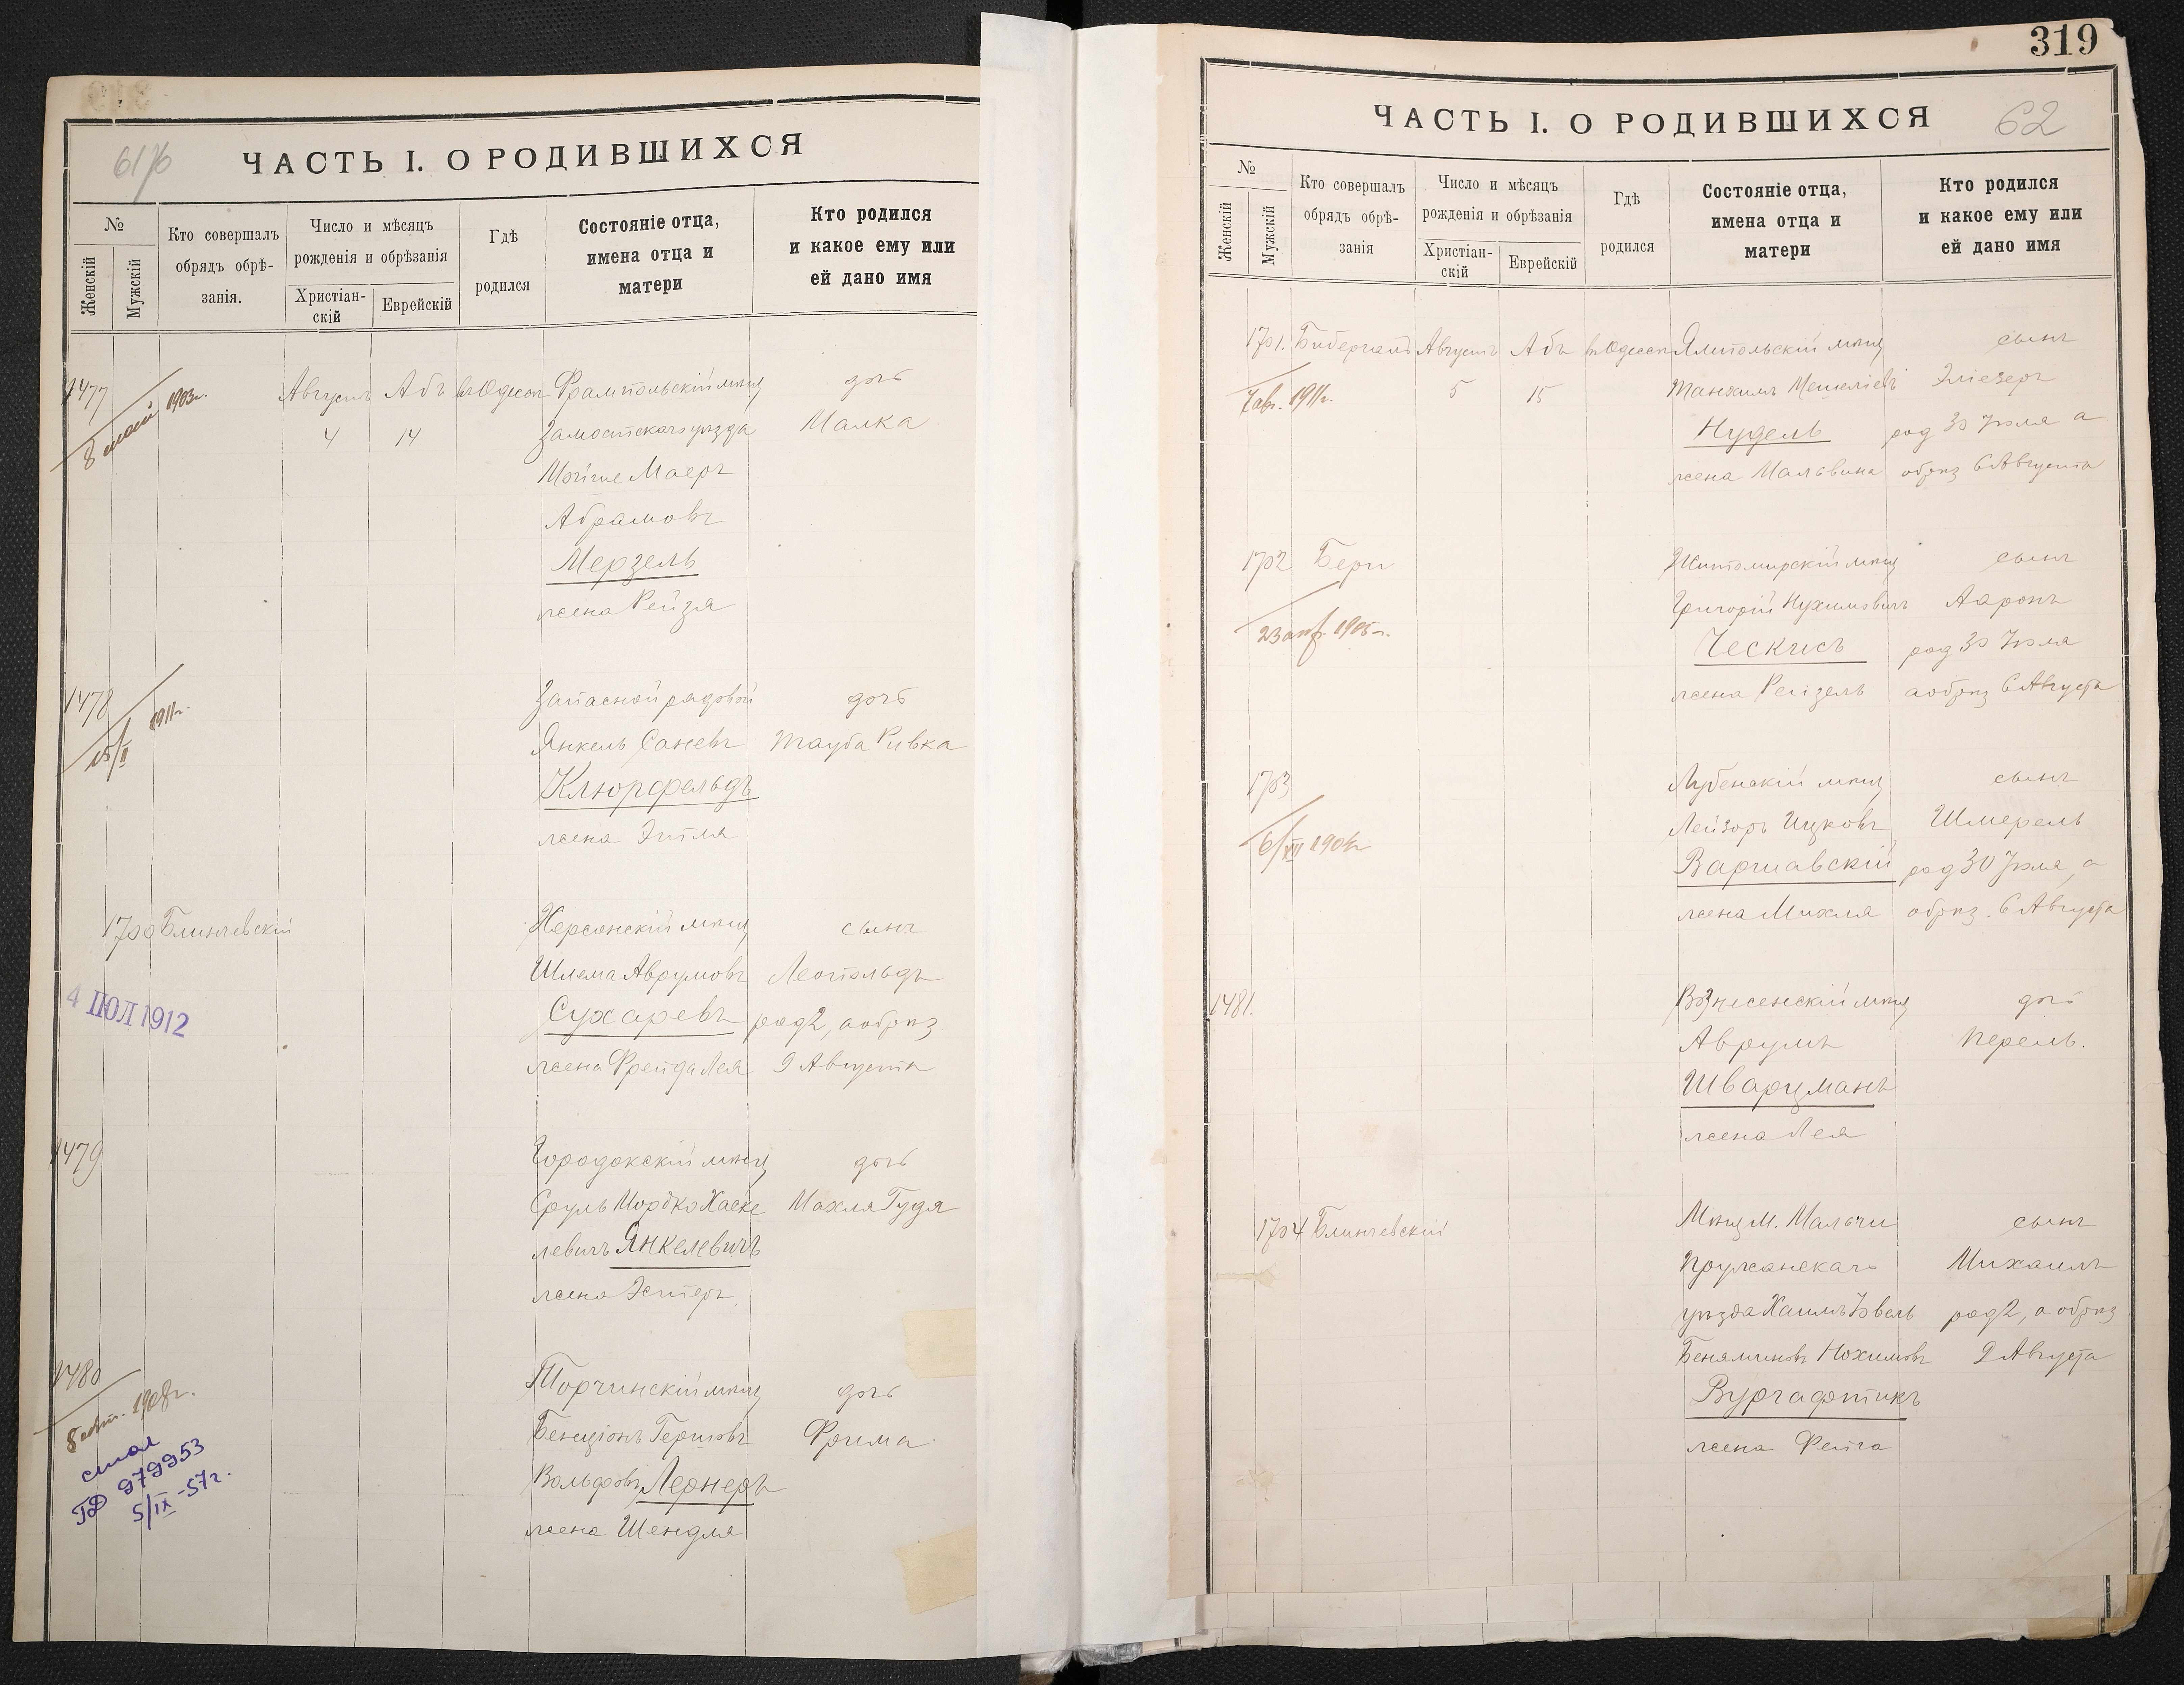 61/б
ЧАСТЬ I. О РОДИВШИХСЯ
№
Женскій
Мужскій
Кто совершалъ
обрядъ обрѣ-
занія.
Число и мѣсяцъ
рожденія и обрѣзанія
Христіан-
скій
Еврейскій
Гдѣ
родился
Состояніе отца,
имена отца и
матери
Кто родился
и какое ему или
ей дано имя
1477 Августъ Абъ въ Одессѣ Фрампольскій мѣщ дочь
8 1903г.
4 14 Замостскаго уѣзда Малка
Маеръ
Абрамовъ
Мерзель
жена Рейзя
1478 Запасной рядовой дочь
15/II 1911г.
Янкель Саневъ Тауба Ривка
Клюрфельдъ
жена Этля
1700 Блинчевскій Херсонскій мѣщ сынъ
Шлема Аврумовъ Леопольдъ
4 ІЮЛ 1912
Сухаревъ род 2, а обрѣз
жена Фрейда Лея 9 Августа
1479 Городокскій мѣщ дочь
Сруль Мордко Хаске Махля Гудя
левичъ Янкелевичъ
жена Эстеръ
1480 Торчинскій мѣщ дочь
8 1908г.
Бенціонъ Гершовъ Фрима
Вольфовъ Лернеръ
жена Шендля
ГД 979953
5/IX-57г.
319
ЧАСТЬ I. О РОДИВШИХСЯ
62
№
Женскій
Мужскій
Кто совершалъ
обрядъ обрѣ-
занія
Число и мѣсяцъ
рожденія и обрѣзанія
Христіан-
скій
Еврейскій
Гдѣ
родился
Состояніе отца,
имена отца и
матери
Кто родился
и какое ему или
ей дано имя
1701. Бибергалъ Августъ Абъ въ Одессѣ Ямпольскій мѣщ сынъ
авг. 1911г.
5 15 Танхимъ Эліезеръ
Нудель род 30 Іюля а
жена Мальвина обрѣз 6 Августа
1702 Беръ Житомирскій мѣщ сынъ
23 1905г.
Григорій Нухимовичъ Ааронъ
Ческисъ род 30 Іюля
жена Рейзель а обрѣз 6 Августа
1703 Лубенскій мѣщ сынъ
Лейзоръ Ицковъ Шмерель
Варшавскій род 30 Іюля, а
жена Михля обрѣз. 6 Августа
1481. Вознесенскій мѣщ дочь
Аврумъ Перель.
Шварцманъ
жена Лея
1704 Блинчевскій Мѣщ м. Мальчи сынъ
Пружанскаго Михаилъ
уѣзда Хаимъ Іовель род 2, а обрѣз
Беняминовъ Нохимовъ 9 Августа
Вургафтикъ
жена Фейга